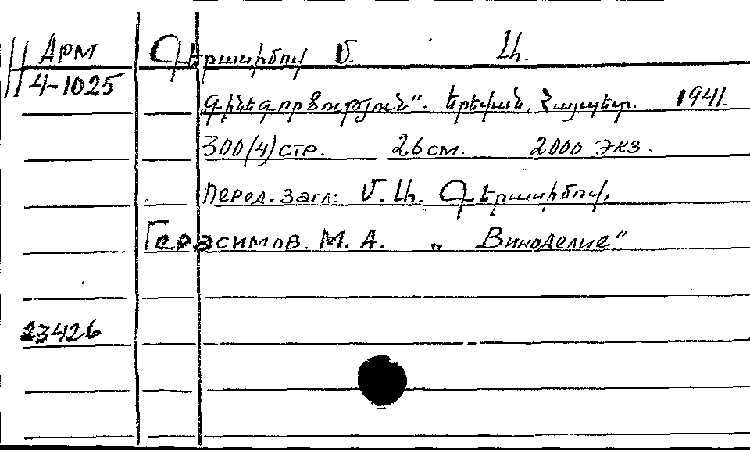 Арм Գերասիմով Մ. Ա.
4-1025
Գինեգործություն". Երևան, Հայպետ. 1941
300(4)стр. 26см. 2000 экз.
Перед. загл: Մ. Ա. Գերասիմով.
Герасимов. М. А. „Виноделие"
23426